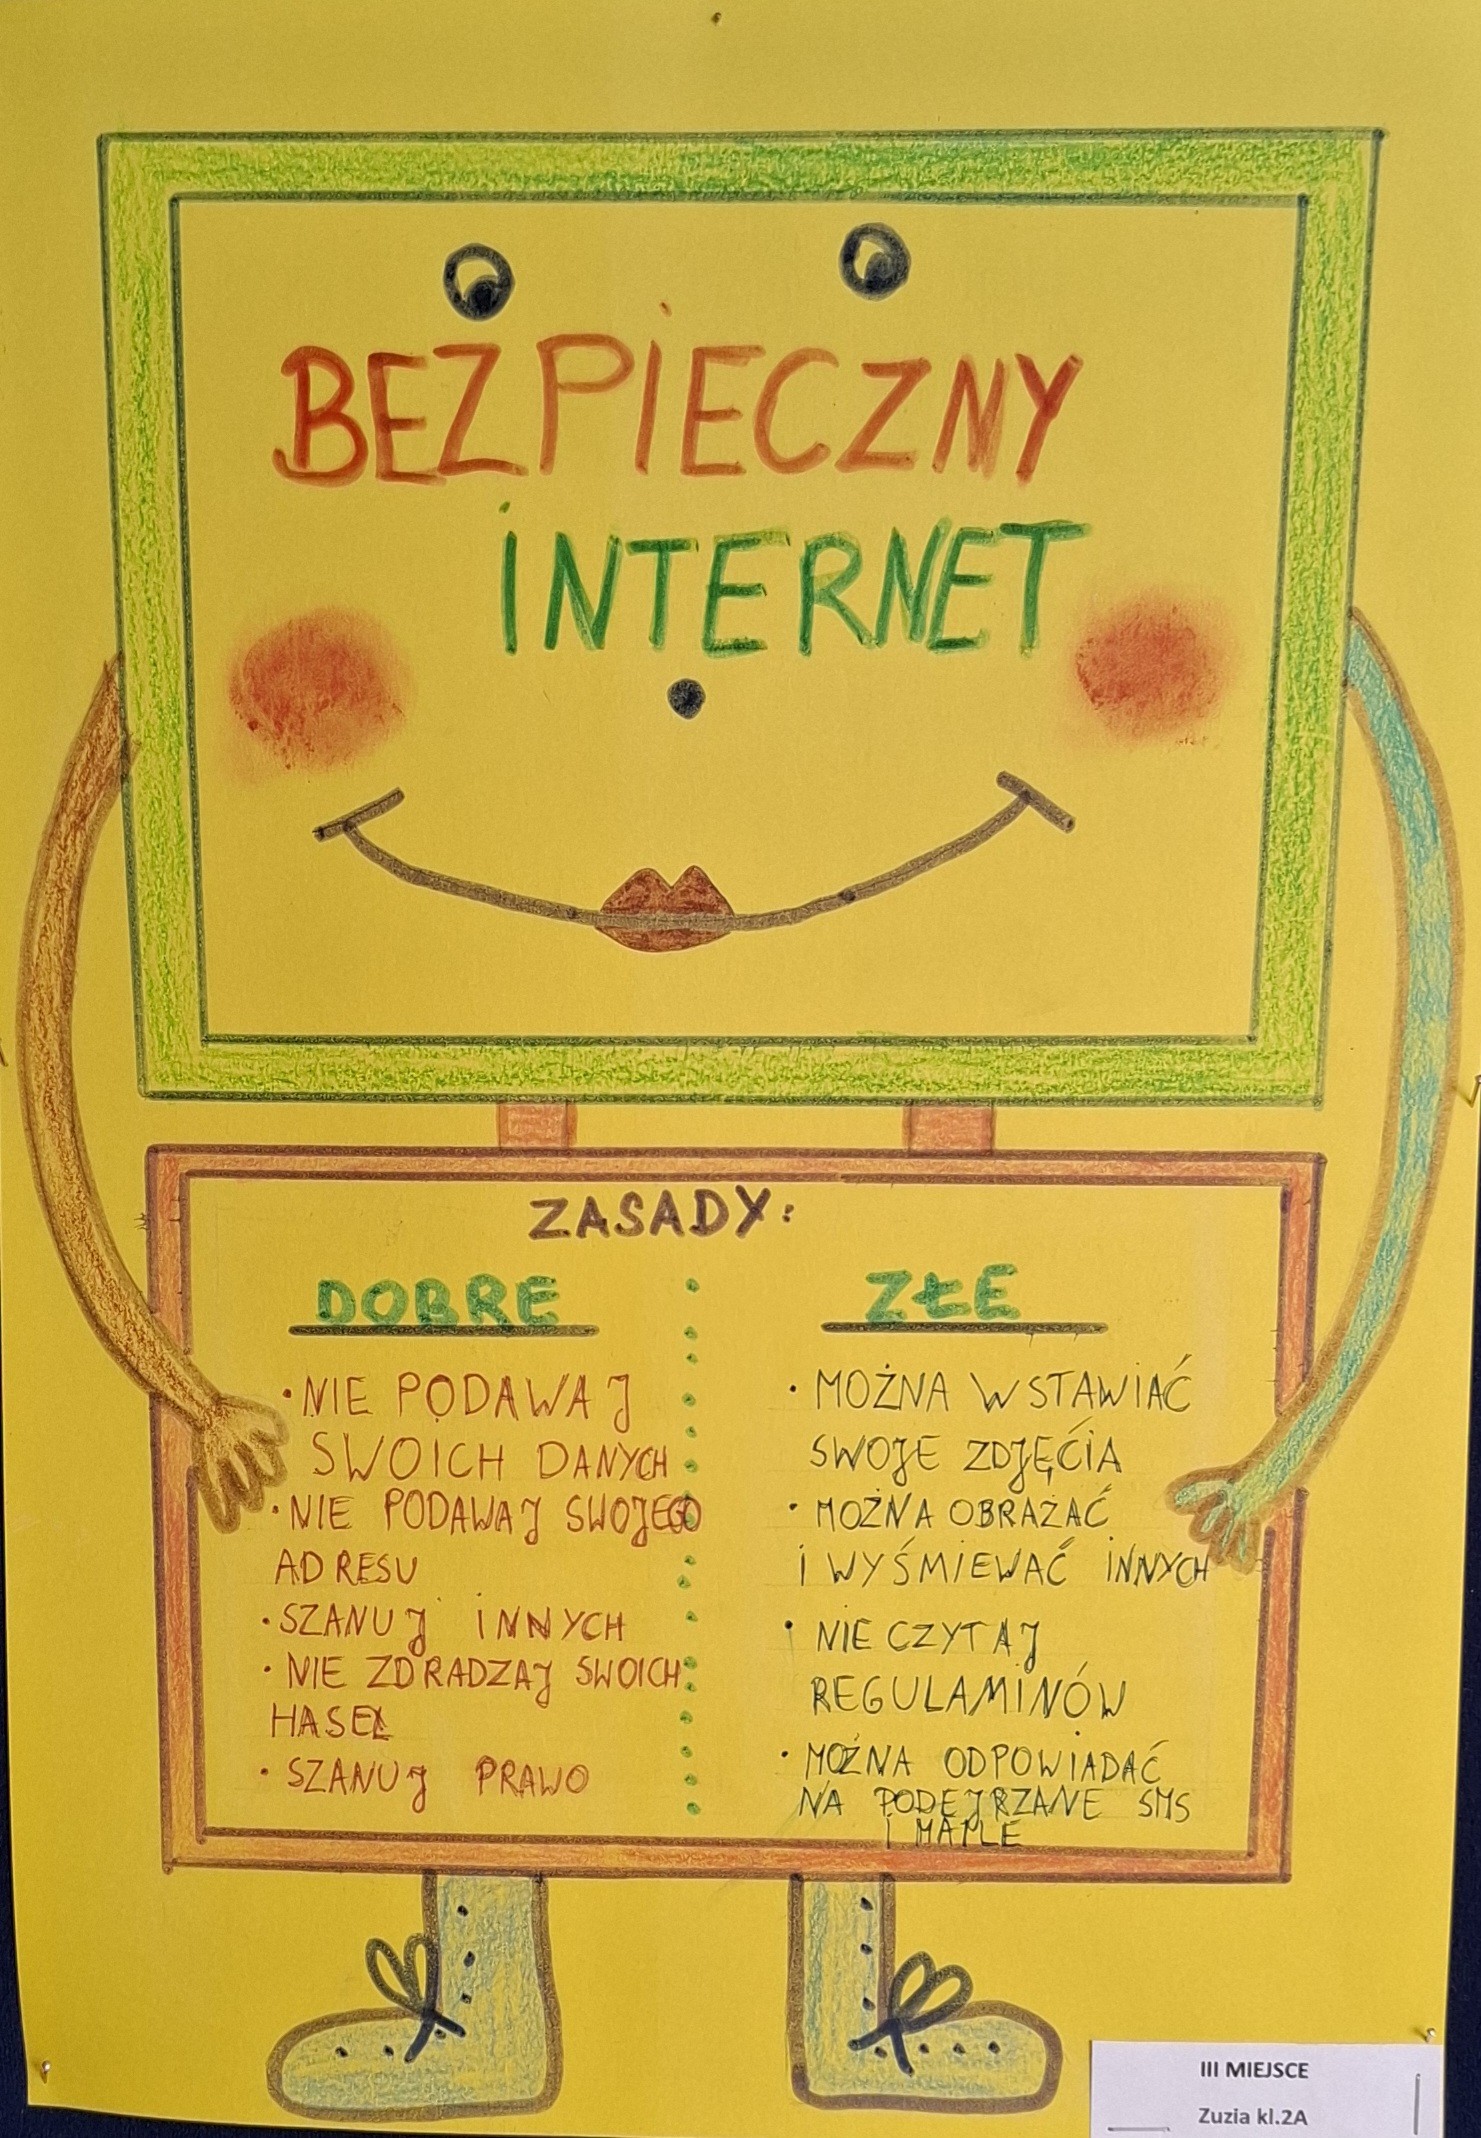 BEZPIECZNY
INTERNET
ZASADY:
DOBRE
• NIE PODAWAJ
SWOICH DANYCH
• NIE PODAWAJ SWOJEGO
ADRESU
• SZANUJ INNYCH
• NIE ZDRADZAJ SWOICH
HASEŁ
• SZANUJ PRAWO
ZŁE
• MOŻNA WSTAWIAĆ
SWOJE ZDJĘĆIA
• MOŻNA OBRAŻAĆ
I WYŚMIEWAĆ INNYCH
• NIE CZYTAJ
REGULAMINÓW
• MOŻNA ODPOWIADAĆ
NA PODEJRZANE SMS
I MAILE
III MIEJSCE
Zuzia kl.2A